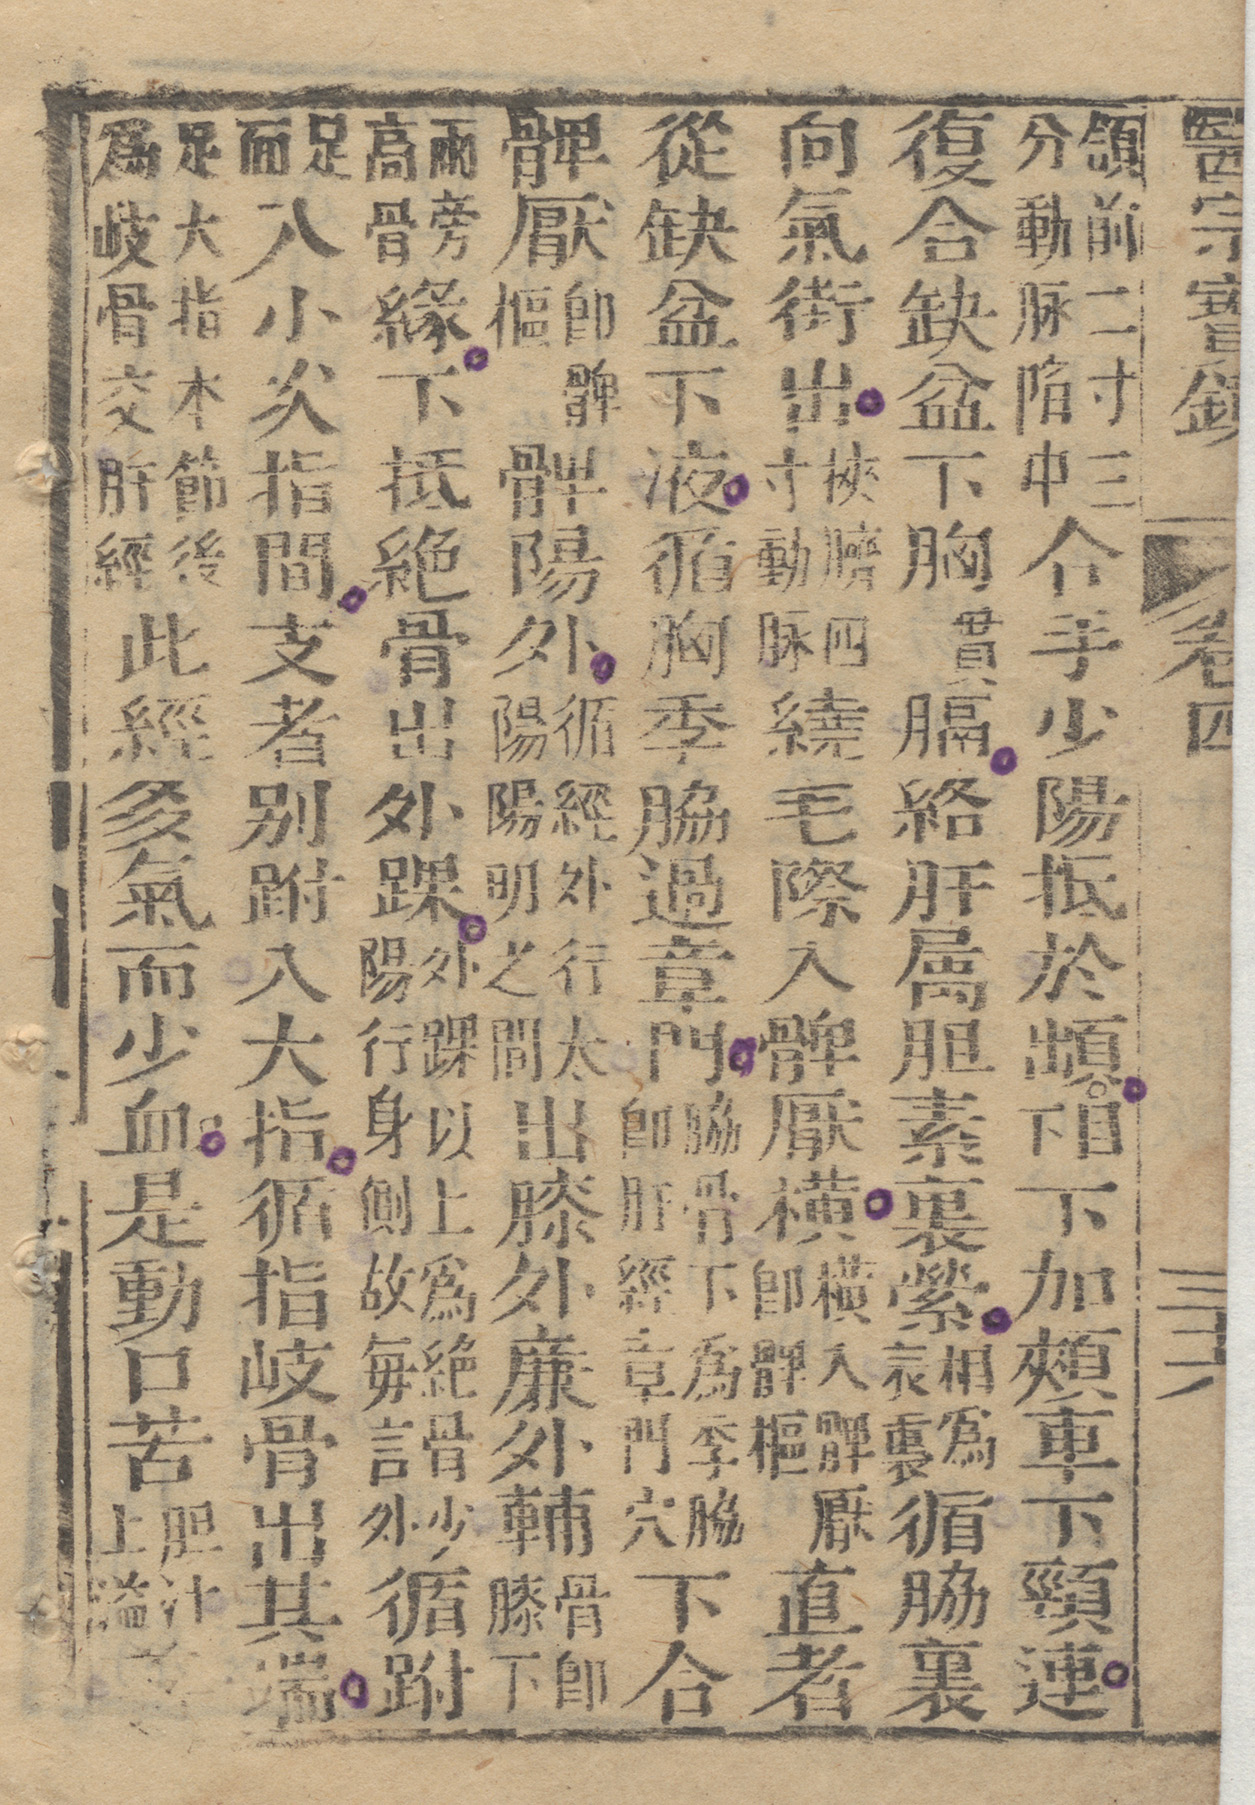 醫宗寶鏡 卷四 三十六
頷前二寸三分動脉陷中合手少陽抵於䪼○目下下加頰車下頸連
復合缺盆下胸貫膈絡肝屬胆素裏縈相為表裏循脇裏
向氣街出挾臍四寸動脉繞毛際入髀厭橫橫入髀厭即髀樞直者
從缺盆下液循胸季脇過章門脇骨下為季脇即肝經章門穴下合
髀厭即髀樞髀陽外循經外行太陽陽明之間出膝外廉外輔骨即膝下
兩旁高骨緣下抵絶骨出外踝外踝以上為絶骨少陽行身側故每言外循跗
足面入小次指間支者别跗入大指循指岐骨出其端
足大指本節後為岐骨交肝經此經多氣而少血是動口苦胆汁上溢